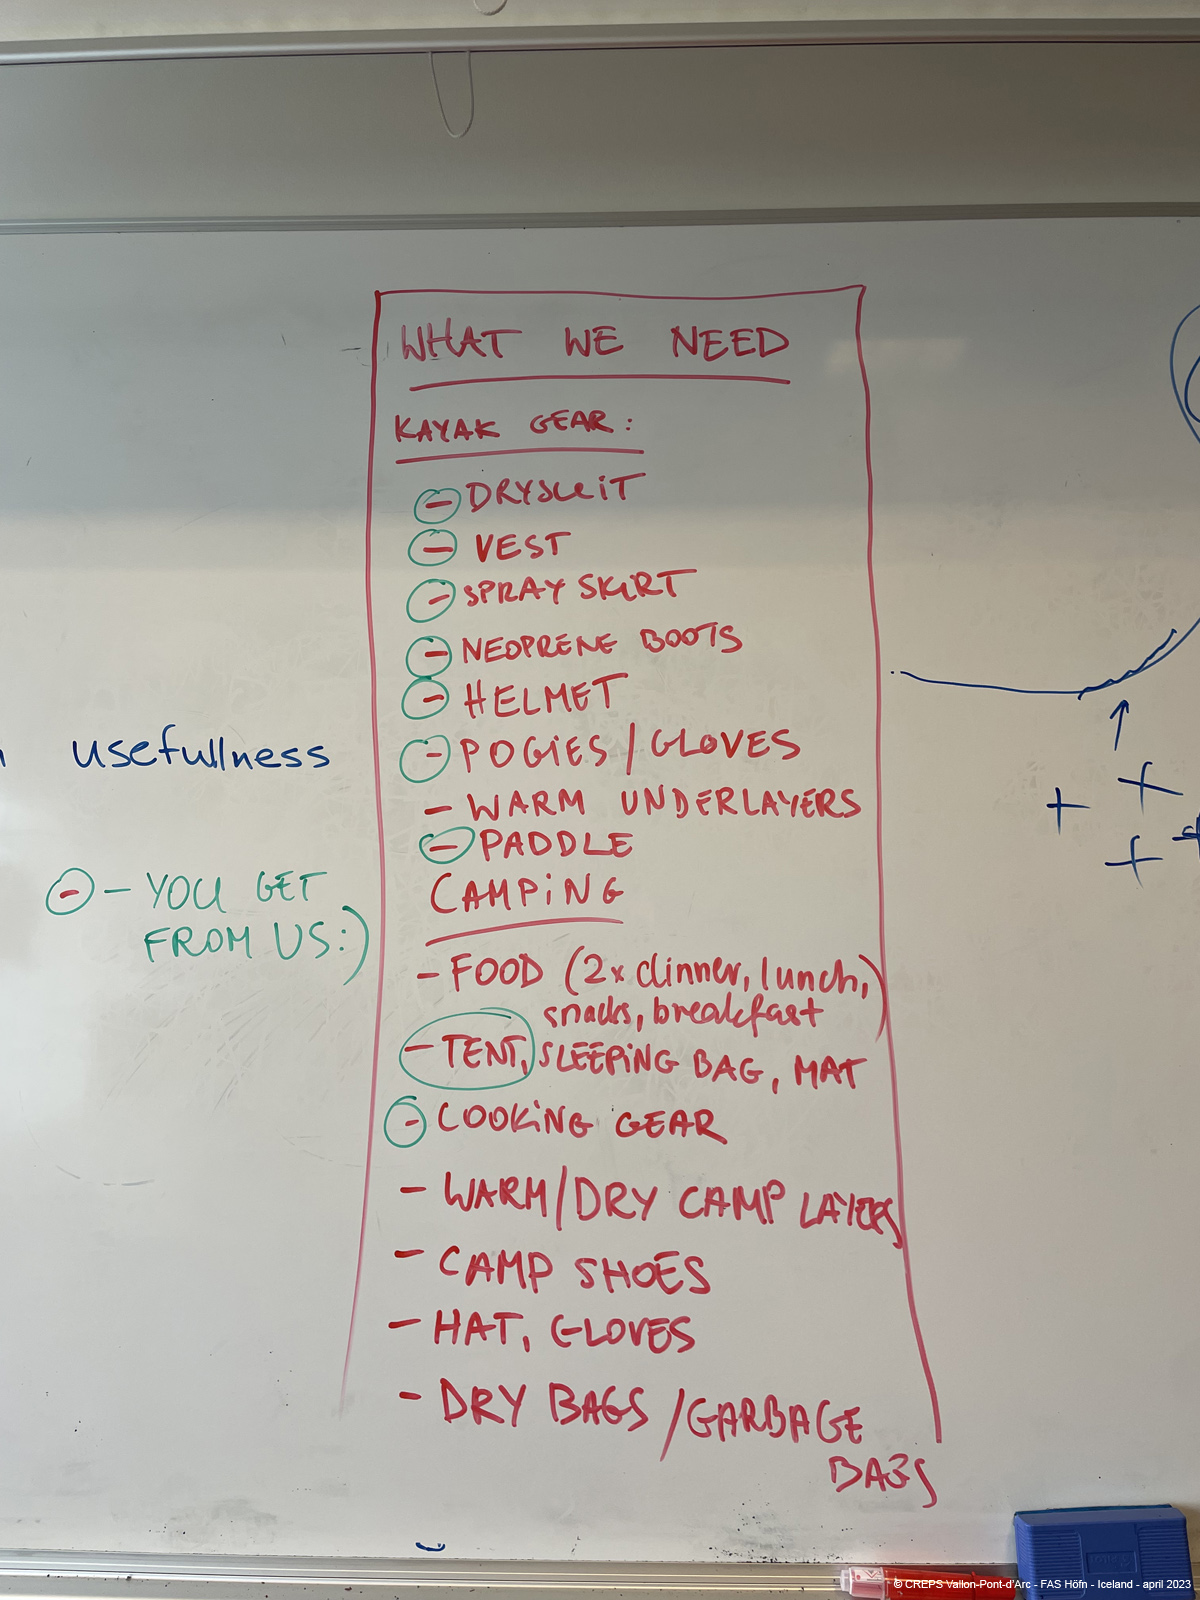 WHAT WE NEED
KAYAK GEAR:
- DRYSUIT
- VEST
- SPRAY SKIRT
- NEOPRENE BOOTS
- HELMET
- POGIES / GLOVES
- WARM UNDERLAYERS
- PADDLE
CAMPING
- FOOD (2x dinner, lunch,
snacks, breakfast)
- TENT, SLEEPING BAG, MAT
- COOKING GEAR
- WARM/DRY CAMP LAYERS
- CAMP SHOES
- HAT, GLOVES
- DRY BAGS / GARBAGE
BAGS
usefullness
- - YOU GET
FROM US:)
© CREPS Vallon-Pont-d'Arc - FAS Höfn - Iceland - april 2023